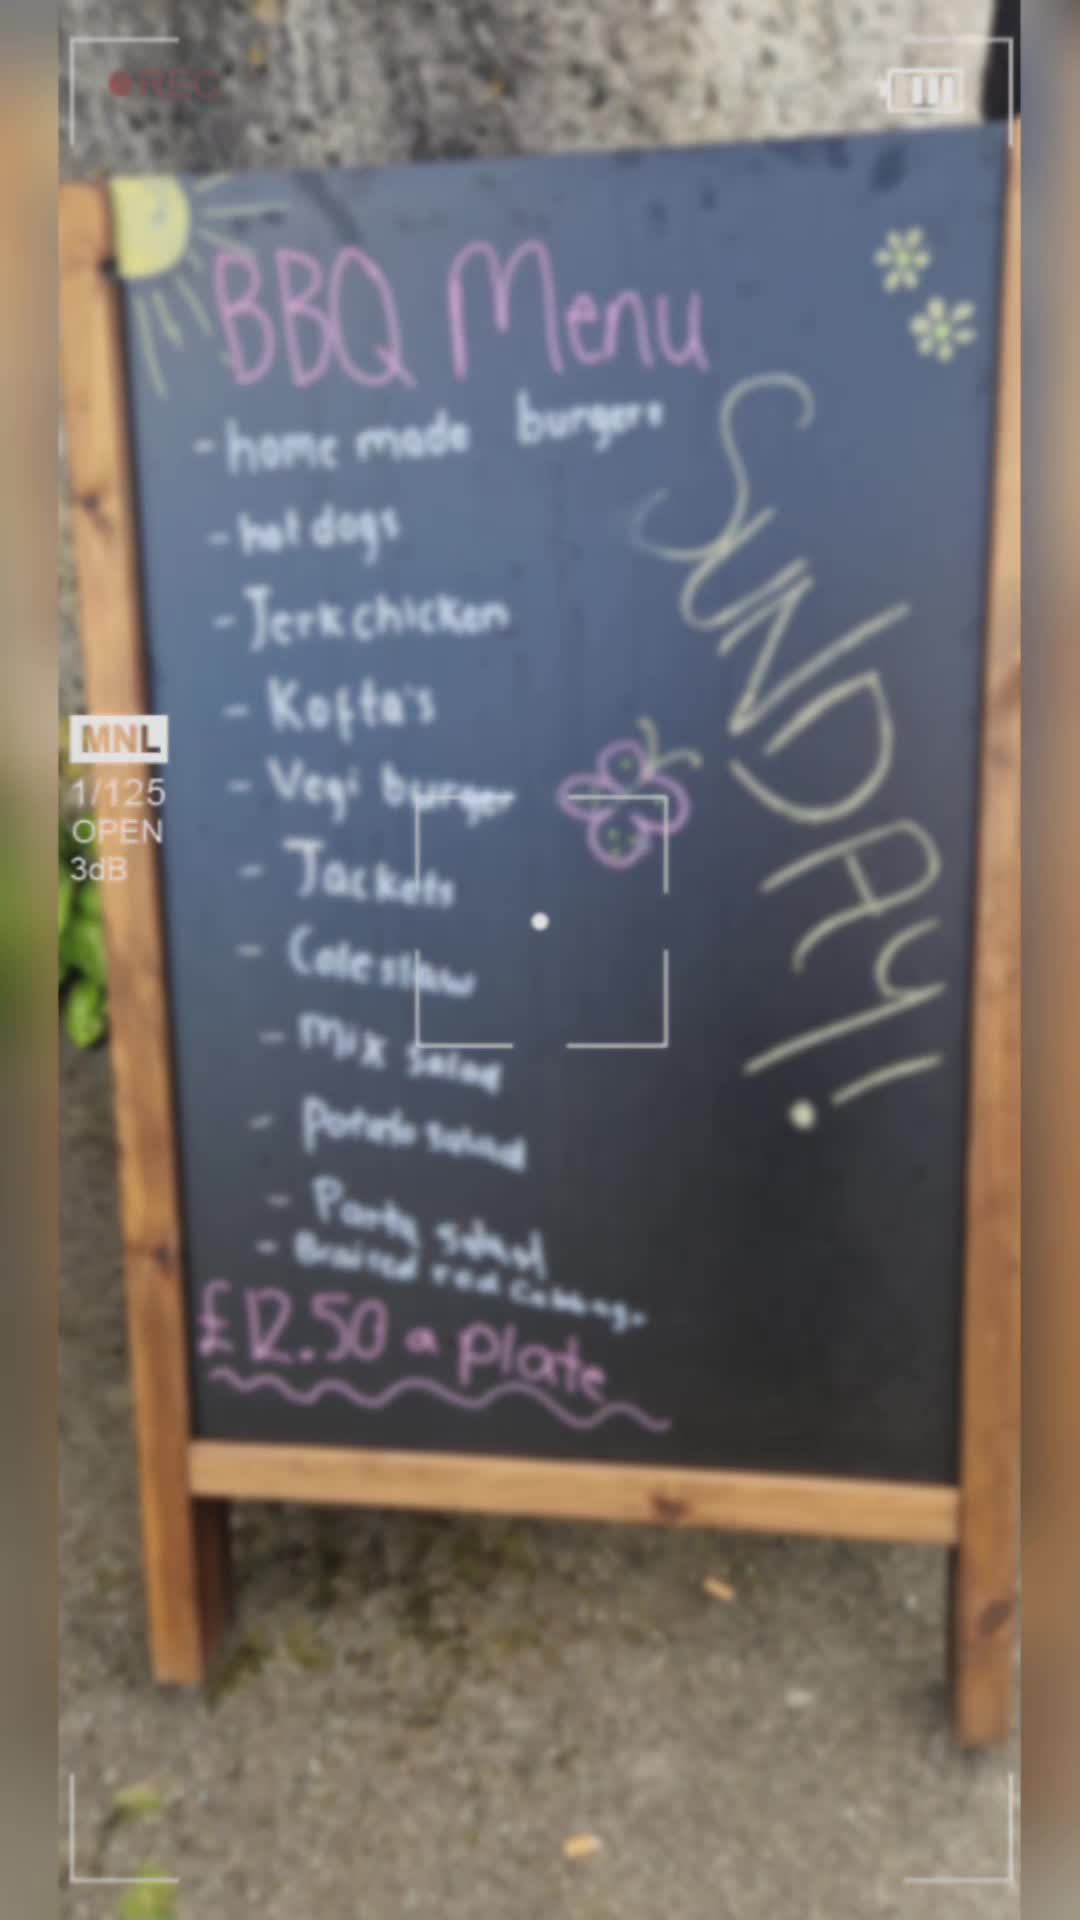 REC
BBQ Menu
- home made burgers
- hot dogs
- Jerk chicken
- Kofta's
- Vegi burger
- Jackets
- Coleslaw
- mix salad
- Potato salad
- Party salad
- Braised red Cabbage
£12.50 a plate
SUNDAY!
MNL
1/125
OPEN
3dB